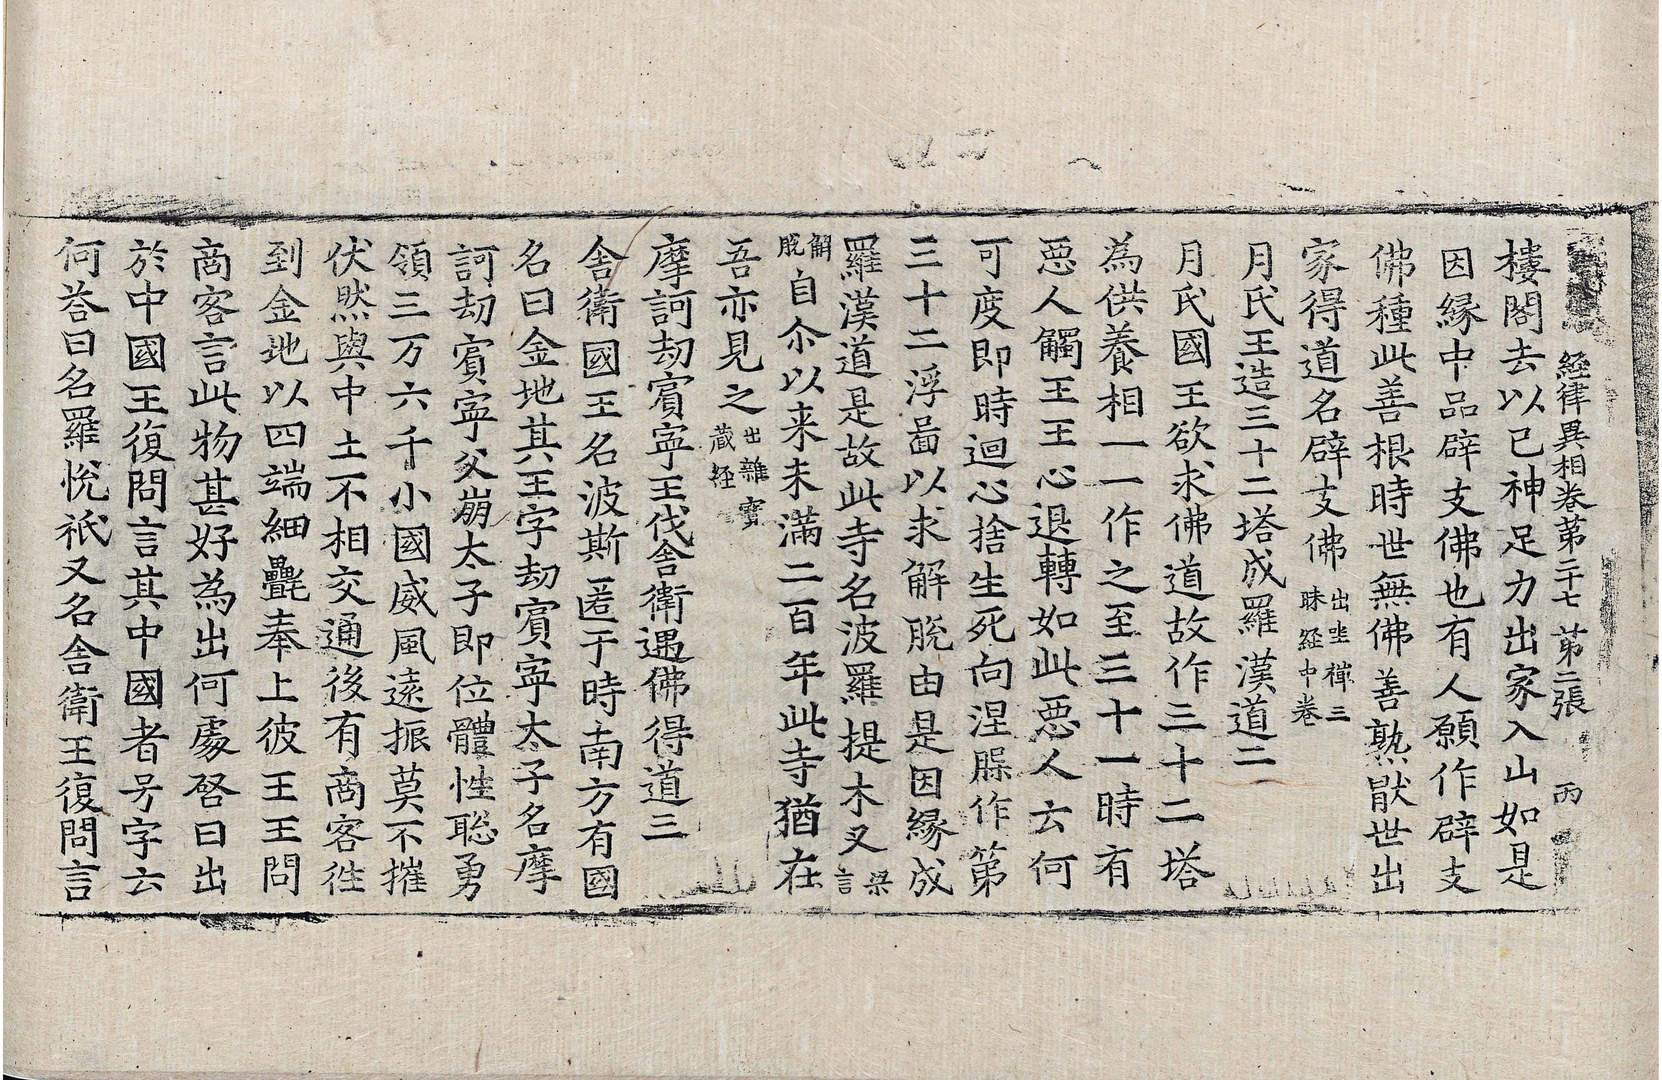 經律異相卷第二十七　第二張　丙
樓閣去以已神足力出家入山如是
因緣中品辟支佛也有人願作辟支
佛種此善根時世無佛善熟猒世出
家得道名辟支佛出坐禪三昧經中卷
月氏王造三十二塔成羅漢道二
月氏國王欲求佛道故作三十二塔
為供養相一一作之至三十一時有
惡人觸王王心退轉如此惡人云何
可度即時迴心捨生死向涅槃作第
三十二浮啚以求解脫由是因緣成
羅漢道是故此寺名波羅提木叉梁言
解脫自尒以来未滿二百年此寺猶在
吾亦見之出雜寶藏經
摩訶劫賓寜王伐舍衛遇佛得道三
舍衛國王名波斯匿于時南方有國
名曰金地其王字劫賓寜太子名摩
訶劫賓寜父崩太子即位體性聡勇
領三万六千小國威風遠振莫不摧
伏然與中土不相交通後有商客往
到金地以四端細㲲奉上彼王王問
商客言此物甚好為出何處答曰出
於中國王復問言其中國者号字云
何荅曰名羅悅祇又名舍衛王復問言